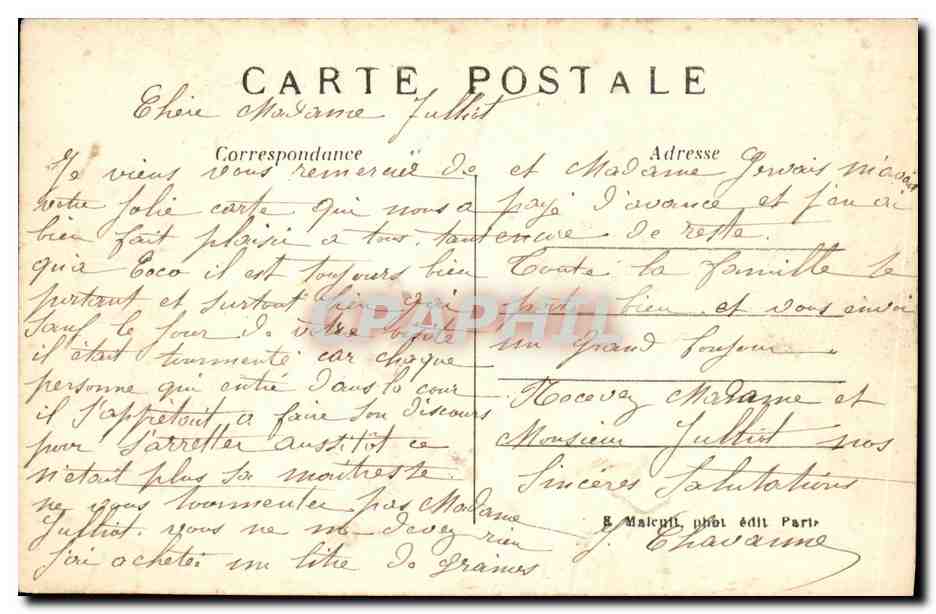 CARTE POSTALE
Chère Madame Julliot
Correspondance
Je viens vous remerciéé de
votre jolie carte qui nous a
bien fait plaisir a tous. tant
qu'a Coco il est toujours bien
portant et surtout bien gai
sauf le jour de votre visite
il était tourmenté car chaque
personne qui entré dans la cour
il s'apprétait a faire son discours
pour s'arretter aussitôt ce
n'etait plus sa maitresse.
ne vous tourmentez pas Madame
Julliot. vous ne me devez rien
j'ai acheter un litre de graines
Adresse
et Madame Gervais m'avait
payé d'avance et j'en ai
encore de reste.
Toute la famille se
porte bien et vous envoi
un grand bonjour.
Recevez Madame et
Monsieur Julliot nos
Sincères Salutations
E Malcuit, phot édit Paris
J. Chavanne
CPAPHIL